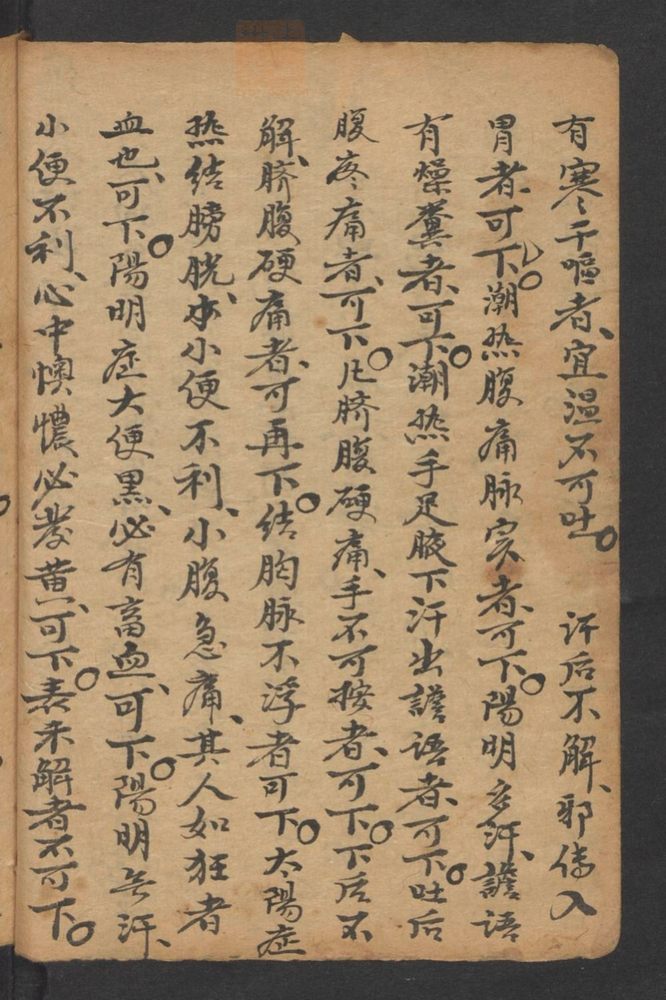 有寒干嘔者、宜温不可吐。　汗后不解、邪傳入
胃者、可下。潮热腹痛脉实者、可下。陽明多汗、譫语
有燥糞者、可下。潮热手足腋下汗出譫语者、可下。吐后
腹疼痛者、可下。凡脐腹硬痛、手不可按者、可下。下后不
解、脐腹硬痛者、可再下。结胸脉不浮者可下。太陽症
热结膀胱、小便不利、小腹急痛、其人如狂者
血也、可下。陽明症大便黑、必有畜血、可下。陽明无汗、
小便不利、心中懊憹必發黄、可下。表未解者不可下。